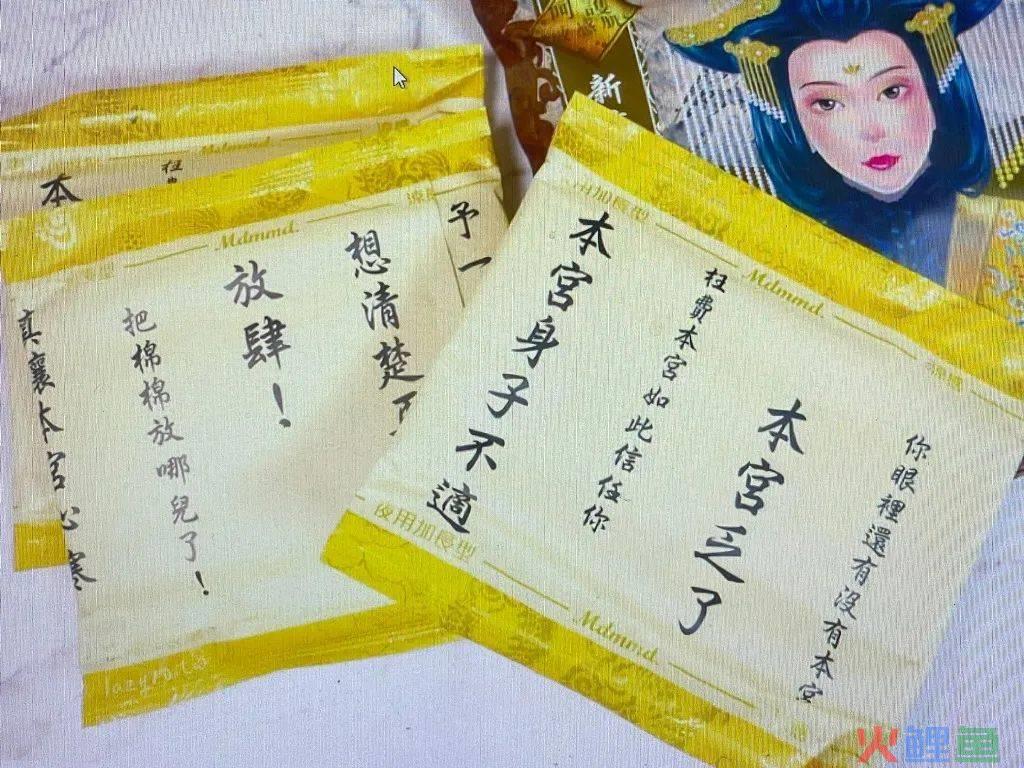 新
Mdmmd
本
放肆！
把棉棉放哪兒了！
想清楚
予一
真襄本宮心寒
本宮身子不適
枉費本宮如此信任你
本宮乏了
你眼裡還有沒有本宮
夜用加長型
Mdmmd
Mdmmd
Mdmmd
火鲤鱼